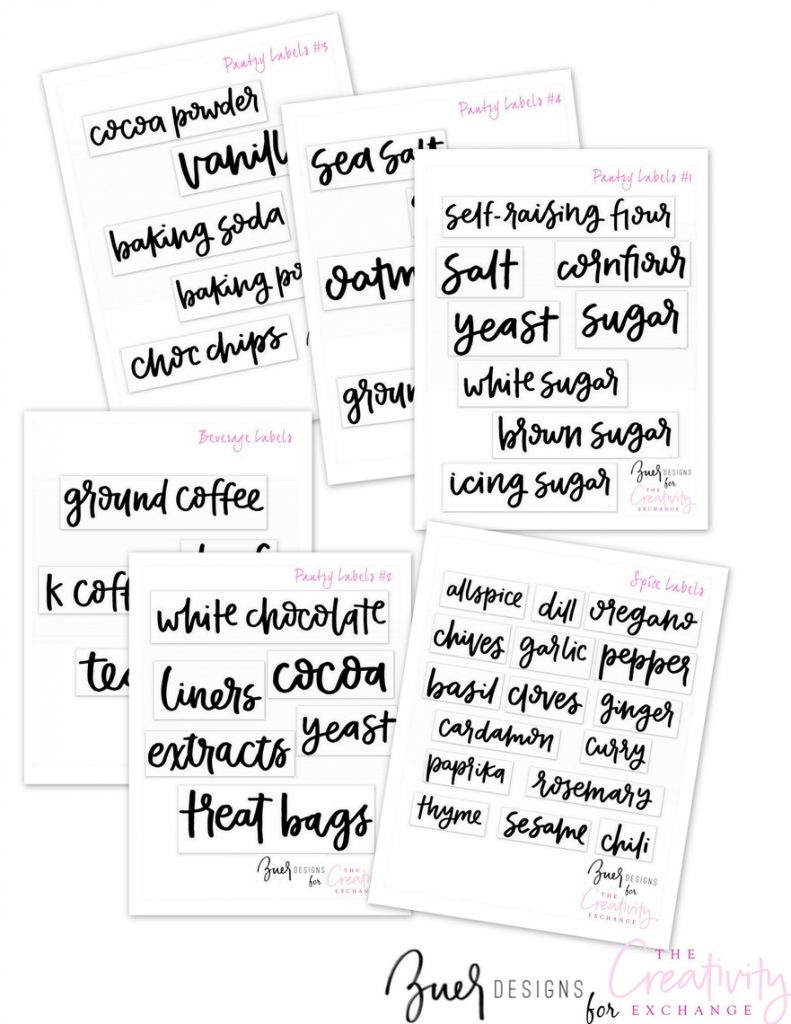 Pantry Labels #3
cocoa powder
baking soda
baking
choc chips
Pantry Labels #4
sea salt
Pantry Labels #1
self-raising flour
salt
cornflour
yeast
sugar
white sugar
brown sugar
icing sugar
Buer DESIGNS
for
THE
Creativity
EXCHANGE
Beverage Labels
ground coffee
k
Pantry Labels #2
white chocolate
liners
cocoa
yeast
extracts
treat bags
Buer DESIGNS
for
THE
Spice Labels
allspice dill oregano
chives garlic pepper
basil cloves ginger
cardamon curry
paprika rosemary
thyme sesame chili
Buer DESIGNS
for
THE
Creativity
EXCHANGE
Buer DESIGNS for THE Creativity EXCHANGE